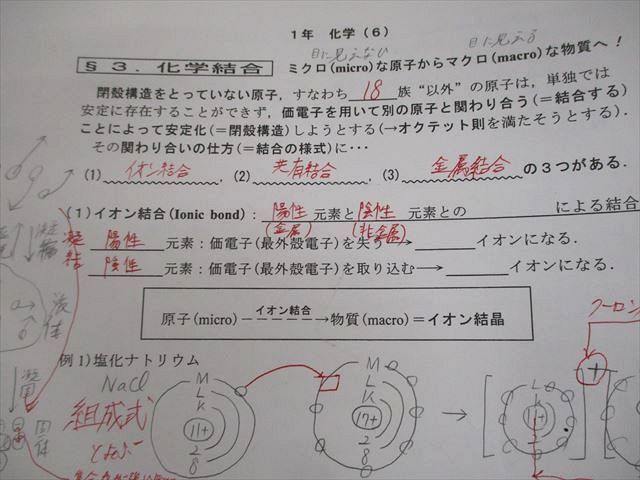 1年 化学（6）
目に見えない 目に見える
§3．化学結合 ミクロ(micro)な原子からマクロ(macro)な物質へ！
閉殻構造をとっていない原子，すなわち 18 族“以外”の原子は，単独では
安定に存在することができず，価電子を用いて別の原子と関わり合う(＝結合する)
ことによって安定化(＝閉殻構造)しようとする(→オクテット則を満たそうとする)．
その関わり合いの仕方(＝結合の様式)に…
(1) イオン結合，(2) 共有結合，(3) 金属結合 の3つがある．
(1)イオン結合(Ionic bond)：陽性 元素と 陰性 元素との による結合
(金属) (非金属)
陽性 元素：価電子(最外殻電子)を失う→ イオンになる．
陰性 元素：価電子(最外殻電子)を取り込む→ イオンになる．
凝縮
凝結
液体
凝固
固体
イオン結合
原子(micro)－－－－－→物質(macro)＝イオン結晶
クーロン
例1)塩化ナトリウム
NaCl
組成式
とよぶ
M
L
K
11+
2
8
M
L
K
17+
2
8
→
L
K
11+
2
8
+